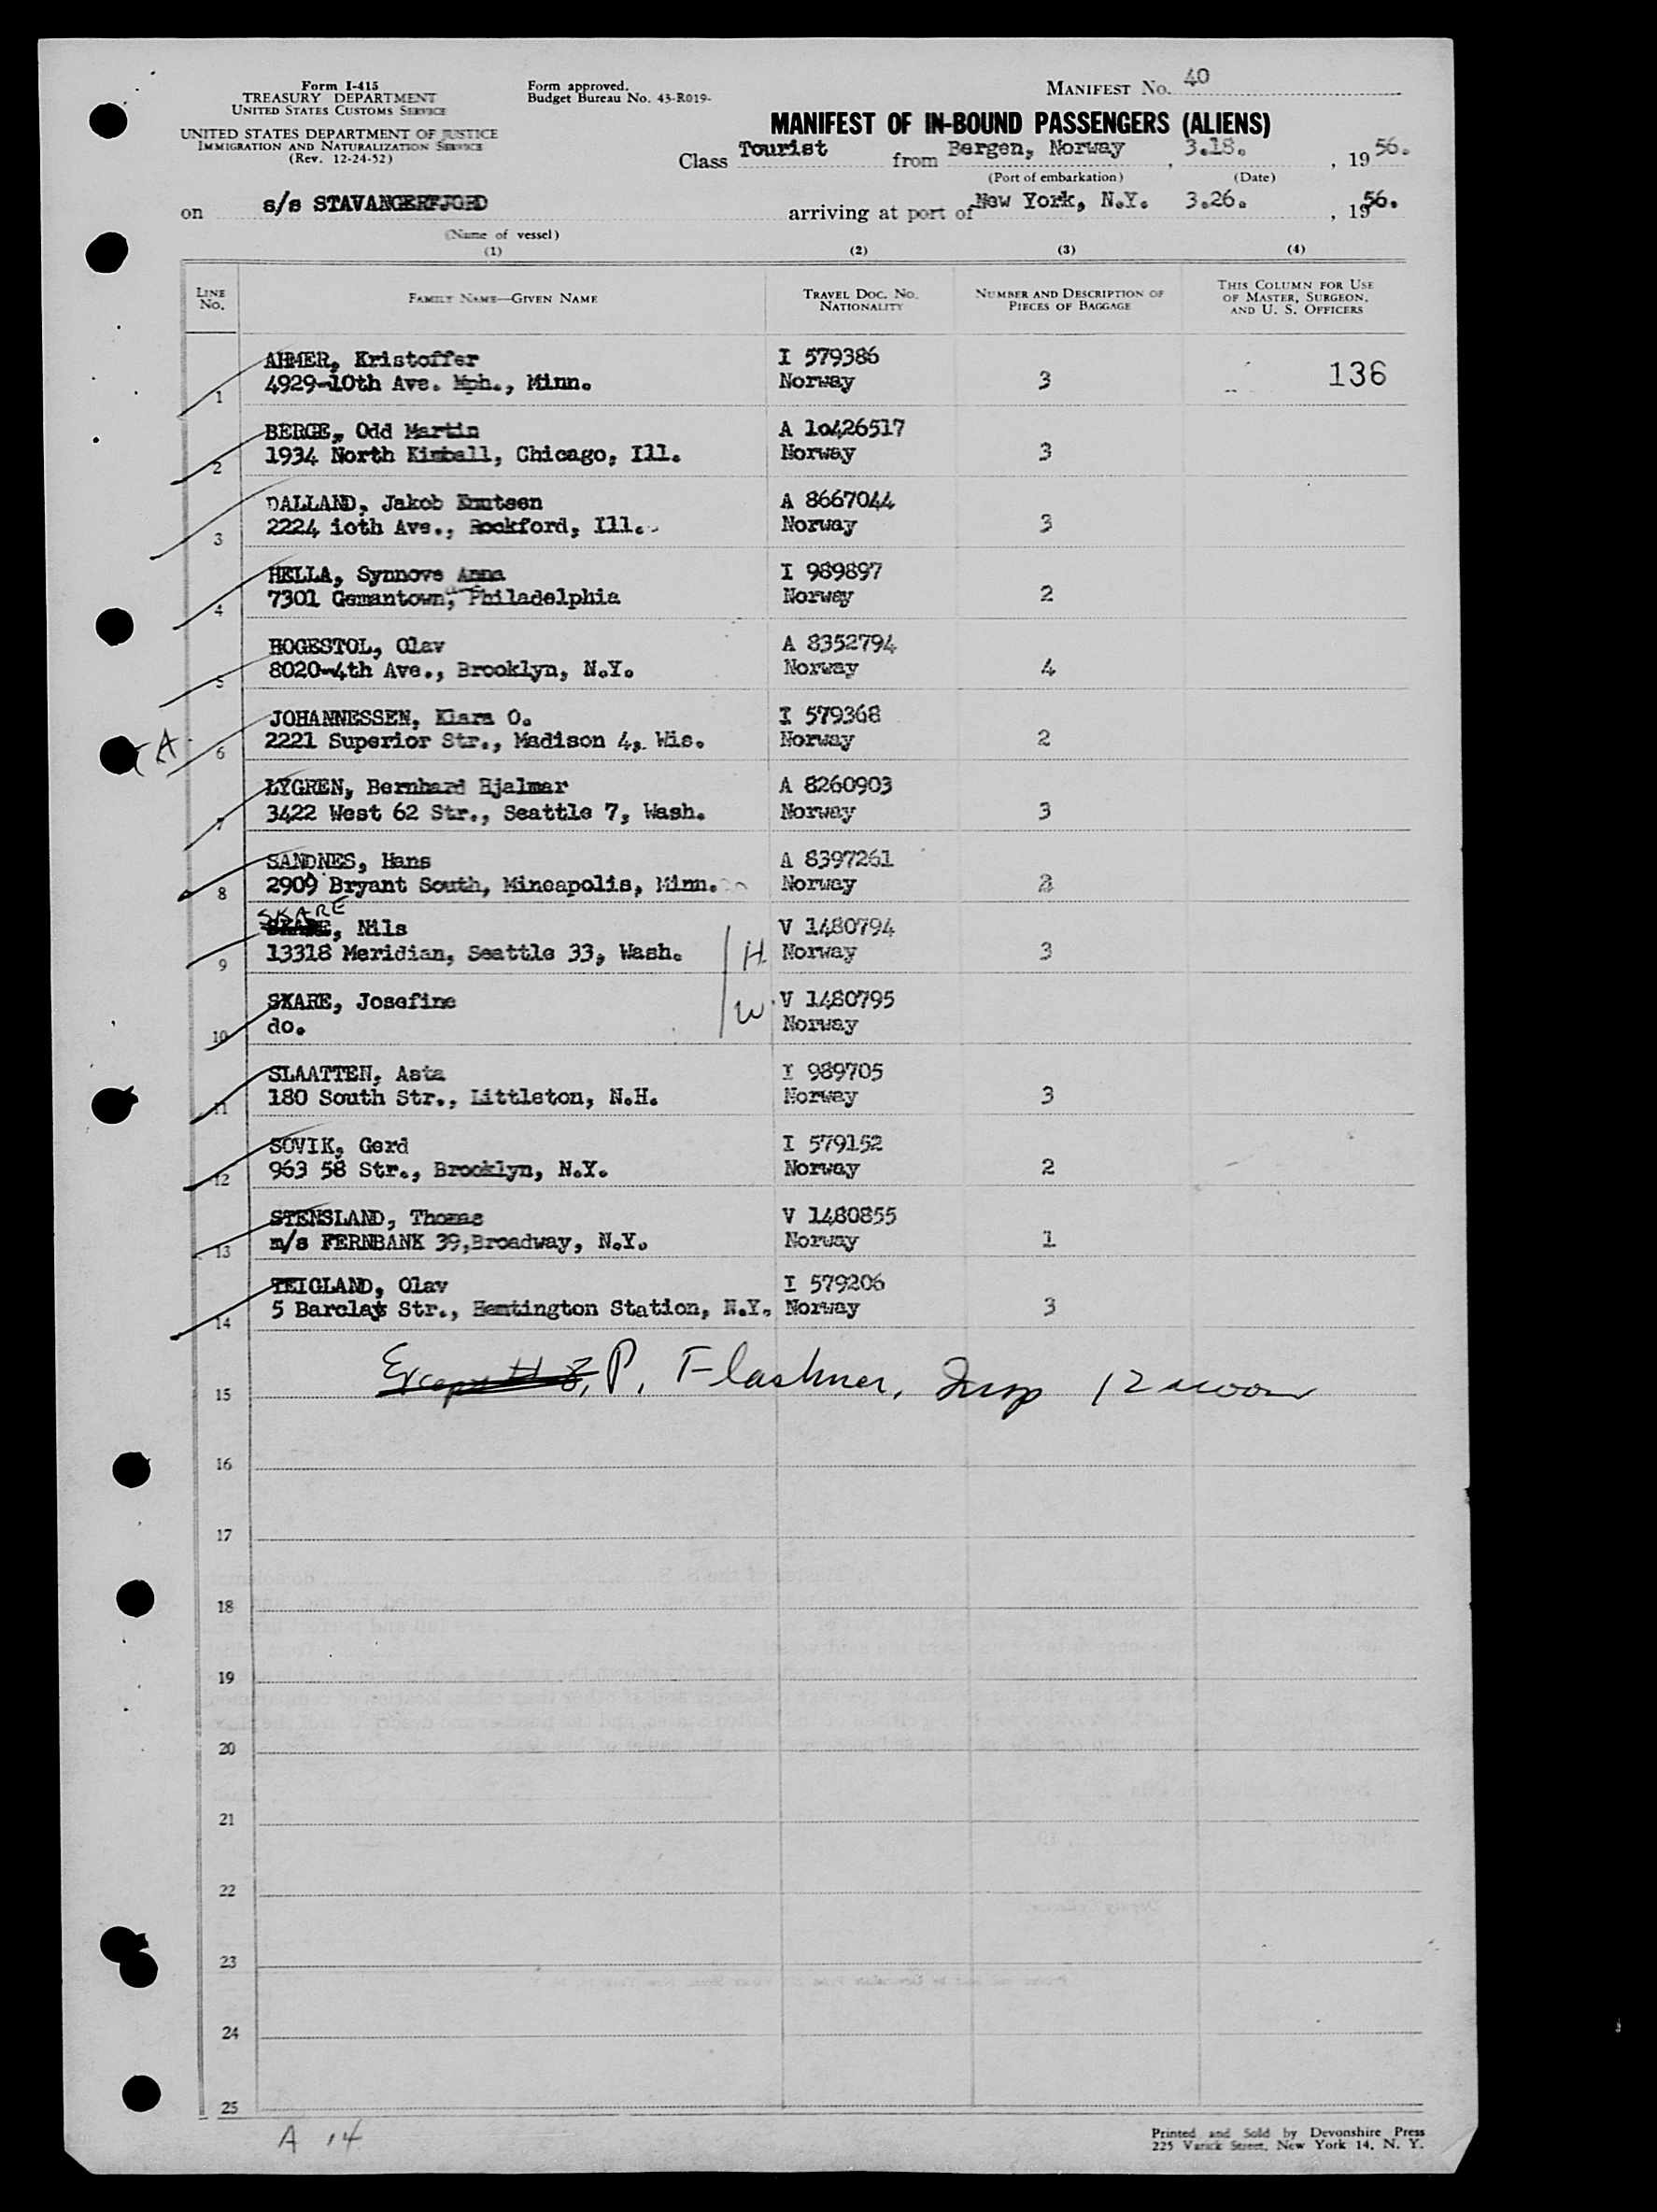 Form I-415
TREASURY DEPARTMENT
UNITED STATES CUSTOMS SERVICE
UNITED STATES DEPARTMENT OF JUSTICE
IMMIGRATION AND NATURALIZATION SERVICE
(Rev. 12-24-52)
Form approved.
Budget Bureau No. 43-R019-
MANIFEST No. 40
MANIFEST OF IN-BOUND PASSENGERS (ALIENS)
Class Tourist from Bergen, Norway, 3.18., 19 56.
(Port of embarkation) (Date)
on s/s STAVANGERFJORD arriving at port of New York, N.Y. 3.26., 19 56.
(Name of vessel)
(1) (2) (3) (4)
LINE No. FAMILY NAME—GIVEN NAME TRAVEL DOC. No. NATIONALITY NUMBER AND DESCRIPTION OF PIECES OF BAGGAGE THIS COLUMN FOR USE OF MASTER, SURGEON, AND U. S. OFFICERS
AHMER, Kristoffer I 579386
1 4929-10th Ave. Mph., Minn. Norway 3 136
BERGE, Odd Martin A 10426517
2 1934 North Kimball, Chicago, Ill. Norway 3
DALLAND, Jakob Knutsen A 8667044
3 2224 ioth Ave., Rockford, Ill. Norway 3
HELLA, Synnove Anna I 989897
4 7301 Gemantown, Philadelphia Norway 2
HOGESTOL, Olav A 8352794
5 8020-4th Ave., Brooklyn, N.Y. Norway 4
JOHANNESSEN, Klara O. I 579368
A 6 2221 Superior Str., Madison 4, Wis. Norway 2
LYGREN, Bernhard Hjalmar A 8260903
7 3422 West 62 Str., Seattle 7, Wash. Norway 3
SANDNES, Hans A 8397261
8 2909 Bryant South, Mineapolis, Minn. Norway
SKARE, Nils V 1480794
9 13318 Meridian, Seattle 33, Wash. H Norway 3
SKARE, Josefine V 1480795
10 do. W Norway
SLAATTEN, Asta I 989705
11 180 South Str., Littleton, N.H. Norway 3
SOVIK, Gerd I 579152
12 963 58 Str., Brooklyn, N.Y. Norway 2
STENSLAND, Thomas V 1480855
13 m/s FERNBANK 39,Broadway, N.Y. Norway 1
TEIGLAND, Olav I 579206
14 5 Barclay Str., Station, N.Y. Norway 3
15 P. Flashner, Insp 12 noon
16
17
18
19
20
21
22
23
24
25
A 14
Printed and Sold by Devonshire Press
225 Varick Street, New York 14, N. Y.